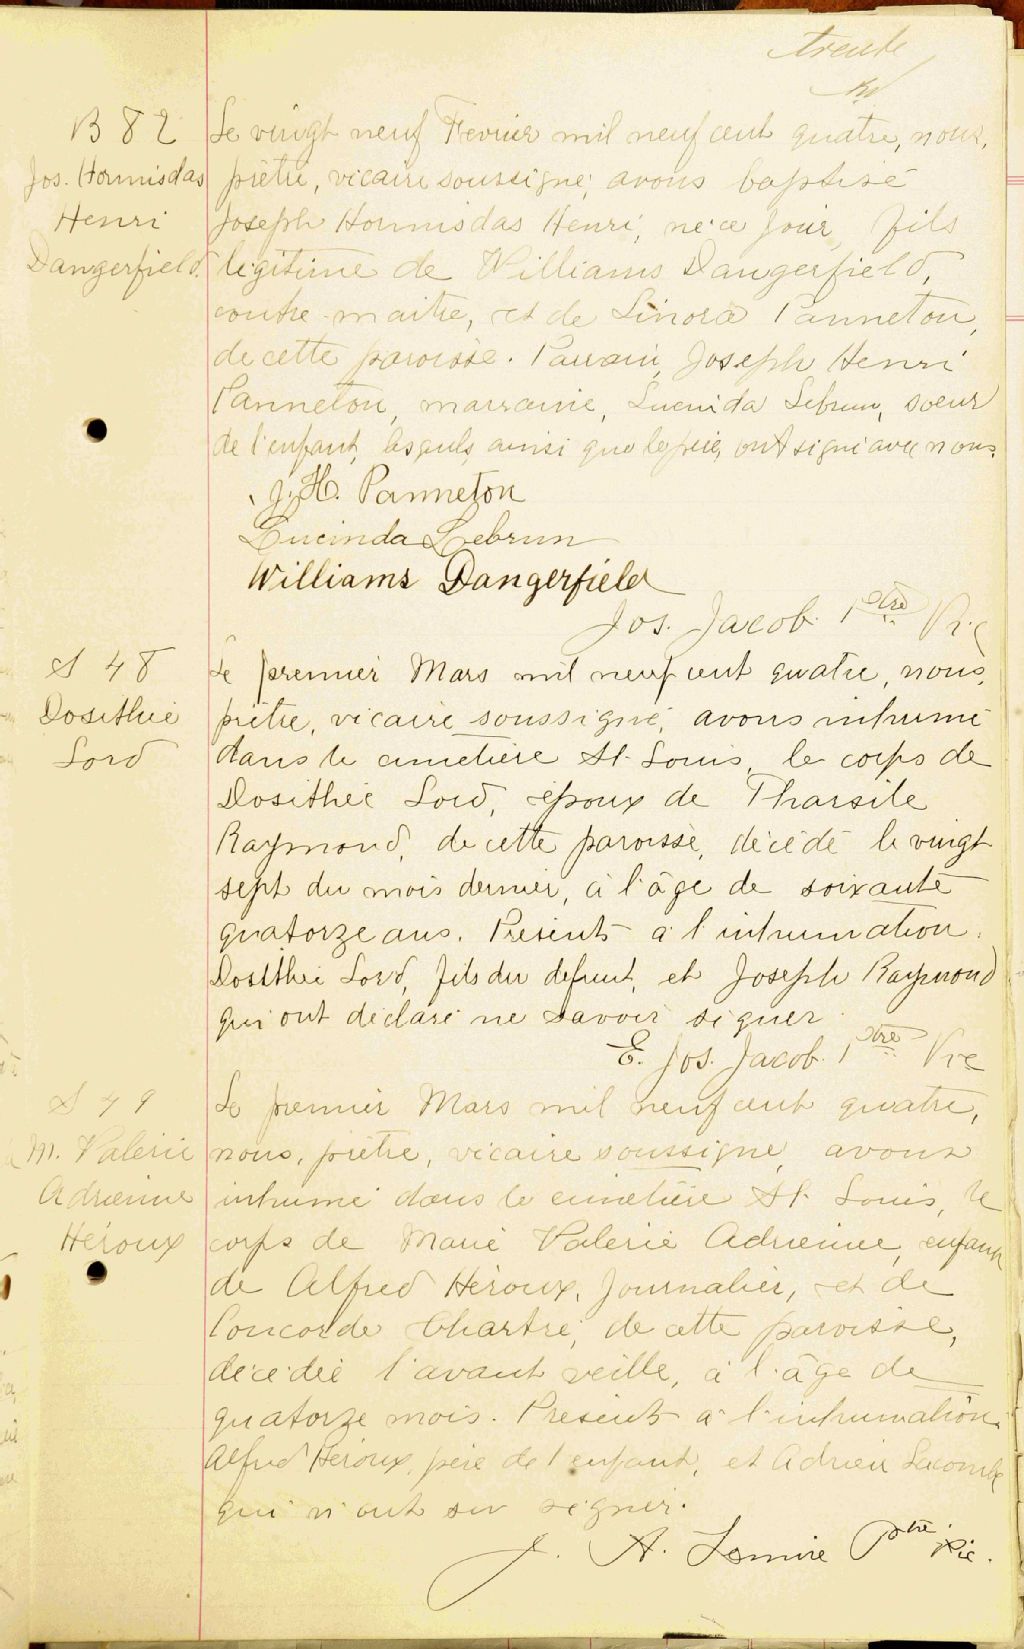 trente
B 82
Jos. Hormisdas
Henri
Dangerfield
Le vingt neuf Fevrier mil neuf cent quatre, nous,
prêtre, vicaire soussigné, avons baptisé
Joseph Hormisdas Henri, né ce jour, fils
légitime de Williams Dangerfield,
contre-maitre, et de Linora Panneton,
de cette paroisse. Parrain, Joseph Henri
Panneton, marraine, Lucinda Lebrun, soeur
de l'enfant, lesquels, ainsi que le père, ont signé avec nous.
J. H. Panneton
Lucinda Lebrun
Williams Dangerfield
Jos. Jacob. Ptre Vic
S 48
Dosithée
Lord
Le premier Mars mil neuf cent quatre, nous,
prêtre, vicaire soussigné, avons inhumé
dans le cimetière St. Louis, le corps de
Dosithée Lord, époux de Tharsile
Raymond, de cette paroisse, décédé le vingt
sept du mois dernier, à l'âge de soixante
quatorze ans. Présents à l'inhumation:
Dosithée Lord, fils du defunt, et Joseph Raymond
qui ont déclaré ne savoir signer.
E. Jos. Jacob. Ptre Vic
S 49
M. Valérie
Adrienne
Héroux
Le premier Mars mil neuf cent quatre,
nous, prêtre, vicaire soussigné, avons
inhumé dans le cimetière St. Louis, le
corps de Marie Valérie Adrienne, enfant
de Alfred Héroux, Journalier, et de
Concorde Chartré, de cette paroisse,
décédée l'avant veille, à l'âge de
quatorze mois. Présents à l'inhumation:
Alfred Héroux, père de l'enfant, et Adrien Lacombe
qui n'ont su signer.
J. A. Lemire Ptre Vic.